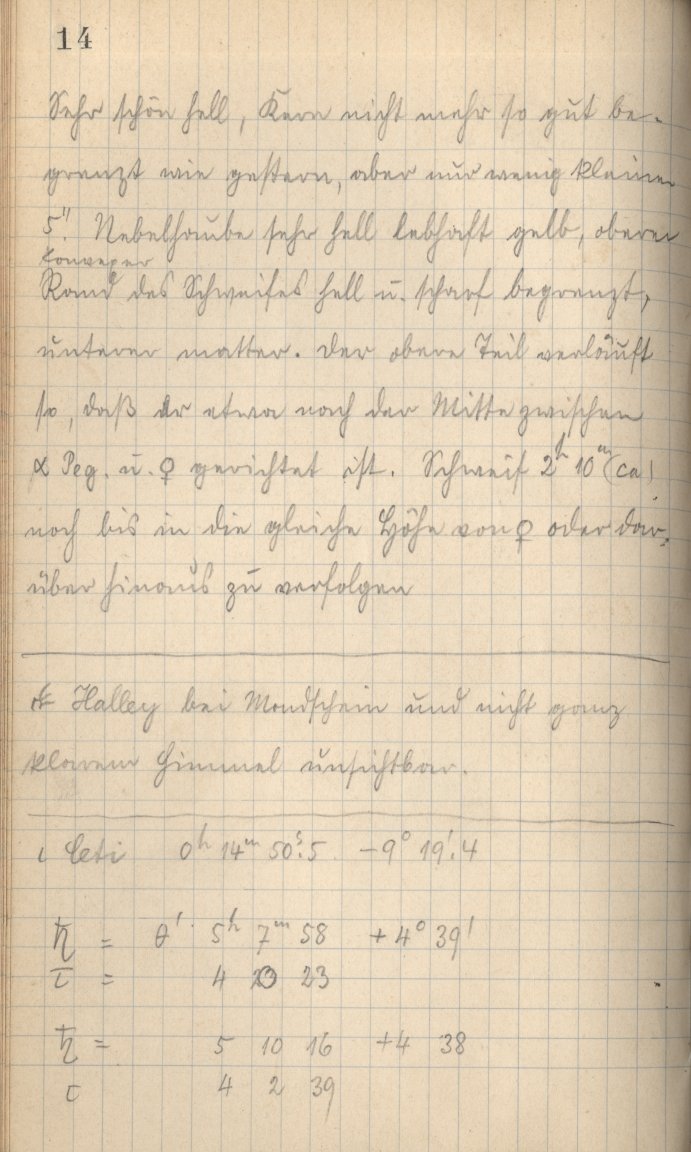 14
Sehr schön hell, Kern nicht mehr so gut be-
grenzt wie gestern, aber nur wenig kleiner
5". Nebelhaube sehr hell lebhaft gelb, oberer
konvexer
Rand des Schweifes hell u. scharf begrenzt,
unterer matter. Der obere Teil verläuft
so, daß er etwa nach der Mitte zwischen
α Peg. u. ♀ gerichtet ist. Schweif 2h 10m (ca)
noch bis in die gleiche Höhe von ♀ oder dar-
über hinaus zu verfolgen
Halley bei Mondschein und nicht ganz
klarem Himmel unsichtbar.
ι Ceti 0h 14m 50s.5 -9° 19'.4
♄ = θ' 5h 7m 58 +4° 39'
τ = 4 0 23
♄ = 5 10 16 +4 38
τ 4 2 39